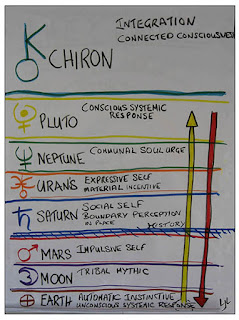 INTEGRATION
CONNECTED CONSCIOUSNESS
CHIRON
CONSCIOUS SYSTEMIC
RESPONSE
PLUTO
NEPTUNE COMMUNAL SOUL URGE
URANS EXPRESSIVE SELF
MATERIAL INCENTIVE
SATURN SOCIAL SELF
BOUNDARY PERCEPTION
IN PLACE
HISTORY
MARS IMPULSIVE SELF
MOON TRIBAL MYTHIC
EARTH AUTOMATIC INSTINCTIVE
UNCONSCIOUS SYSTEMIC RESPONSE